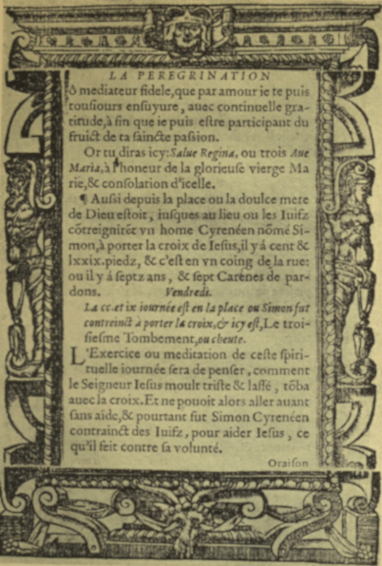 LA PEREGRINATION
ô mediateur fidele, que par amour ie te puis
tousiours ensuyure, auec continuelle gra-
titude, à fin que ie puis estre participant du
fruict de ta saincte passion.
Or tu diras icy: Salue Regina, ou trois Aue
Maria, à l'honeur de la glorieuse vierge Ma
rie, & consolation d'icelle.
¶ Aussi depuis la place ou la doulce mere
de Dieu estoit, iusques au lieu ou les Iuifz
cōtreignirēt vn home Cyrenéen nōmé Si-
mon, à porter la croix de Iesus, il y á cent &
lxxix. piedz, & c'est en vn coing de la rue:
ou il y á septz ans, & sept Carenes de par-
dons. Vendredi.
La cc. et ix iournée est en la place ou Simon fut
contreinct à porter la croix, & icy est, Le troi-
siesme Tombement, ou cheute.
L'Exercice ou meditation de ceste spiri-
tuelle iournée sera de penser, comment
le Seigneur Iesus moult triste & lassé, tōba
auec la croix. Et ne pouoit alors aller auant
sans aide, & pourtant fut Simon Cyrenéen
contrainct des Iuifz, pour aider Iesus, ce
qu'il feit contre sa volunté.
Oraison